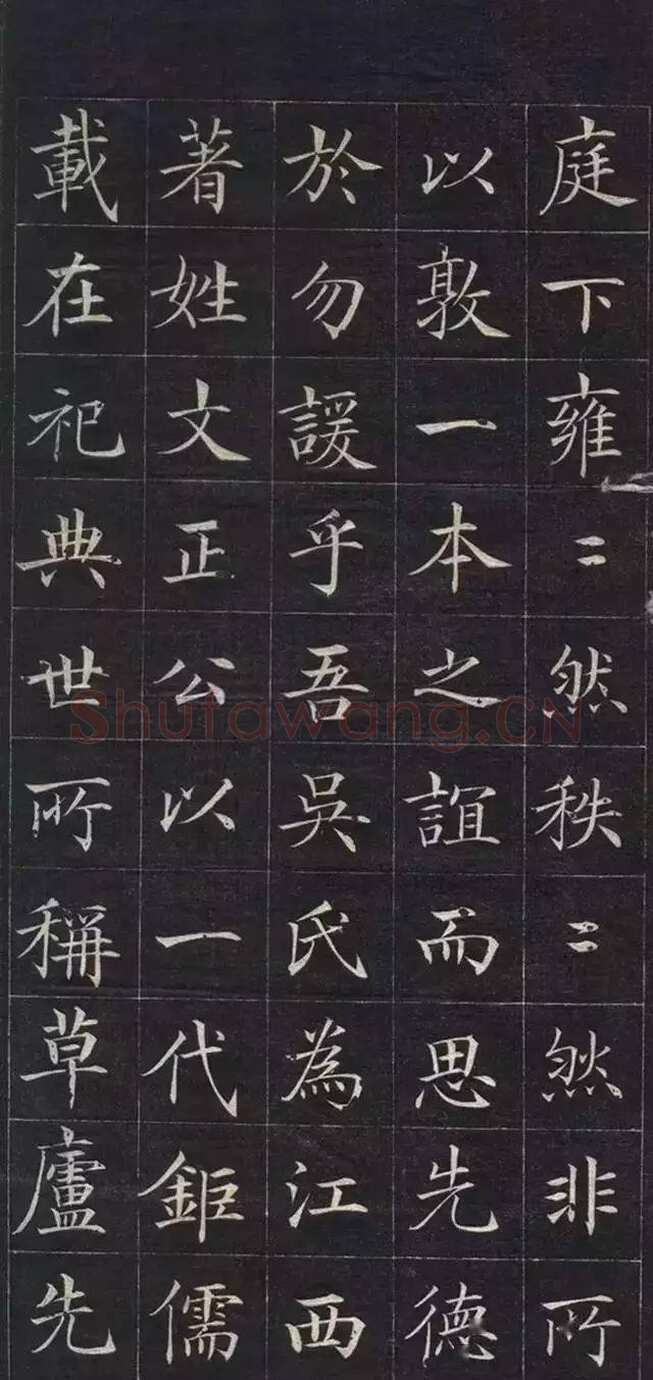 庭下雍〻然秩〻然非所
以敦一本之誼而思先德
於勿諼乎吾吳氏為江西
著姓文正公以一代鉅儒
載在祀典世所稱草廬先
Shufawang.CN